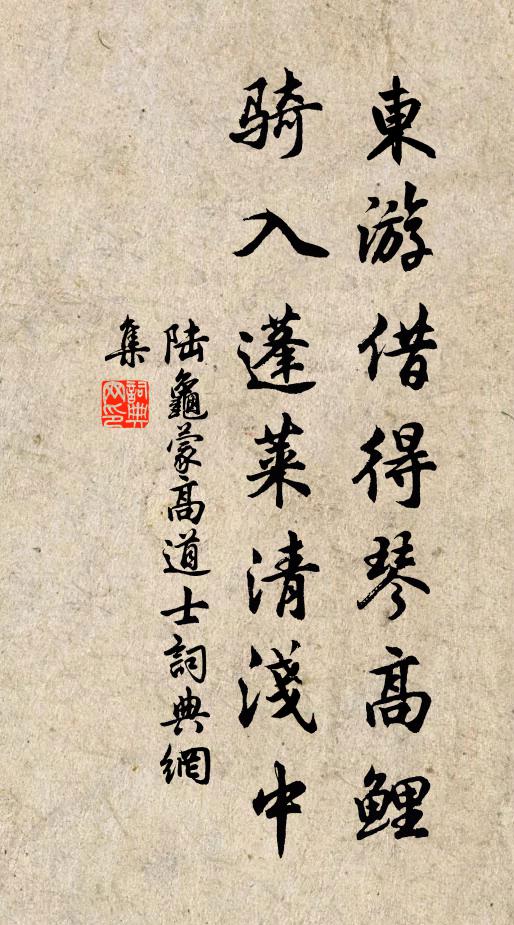 東游借得琴高鲤
骑入蓬莱清淺中
陆龜蒙高道士詞典網
集
詞典
网印